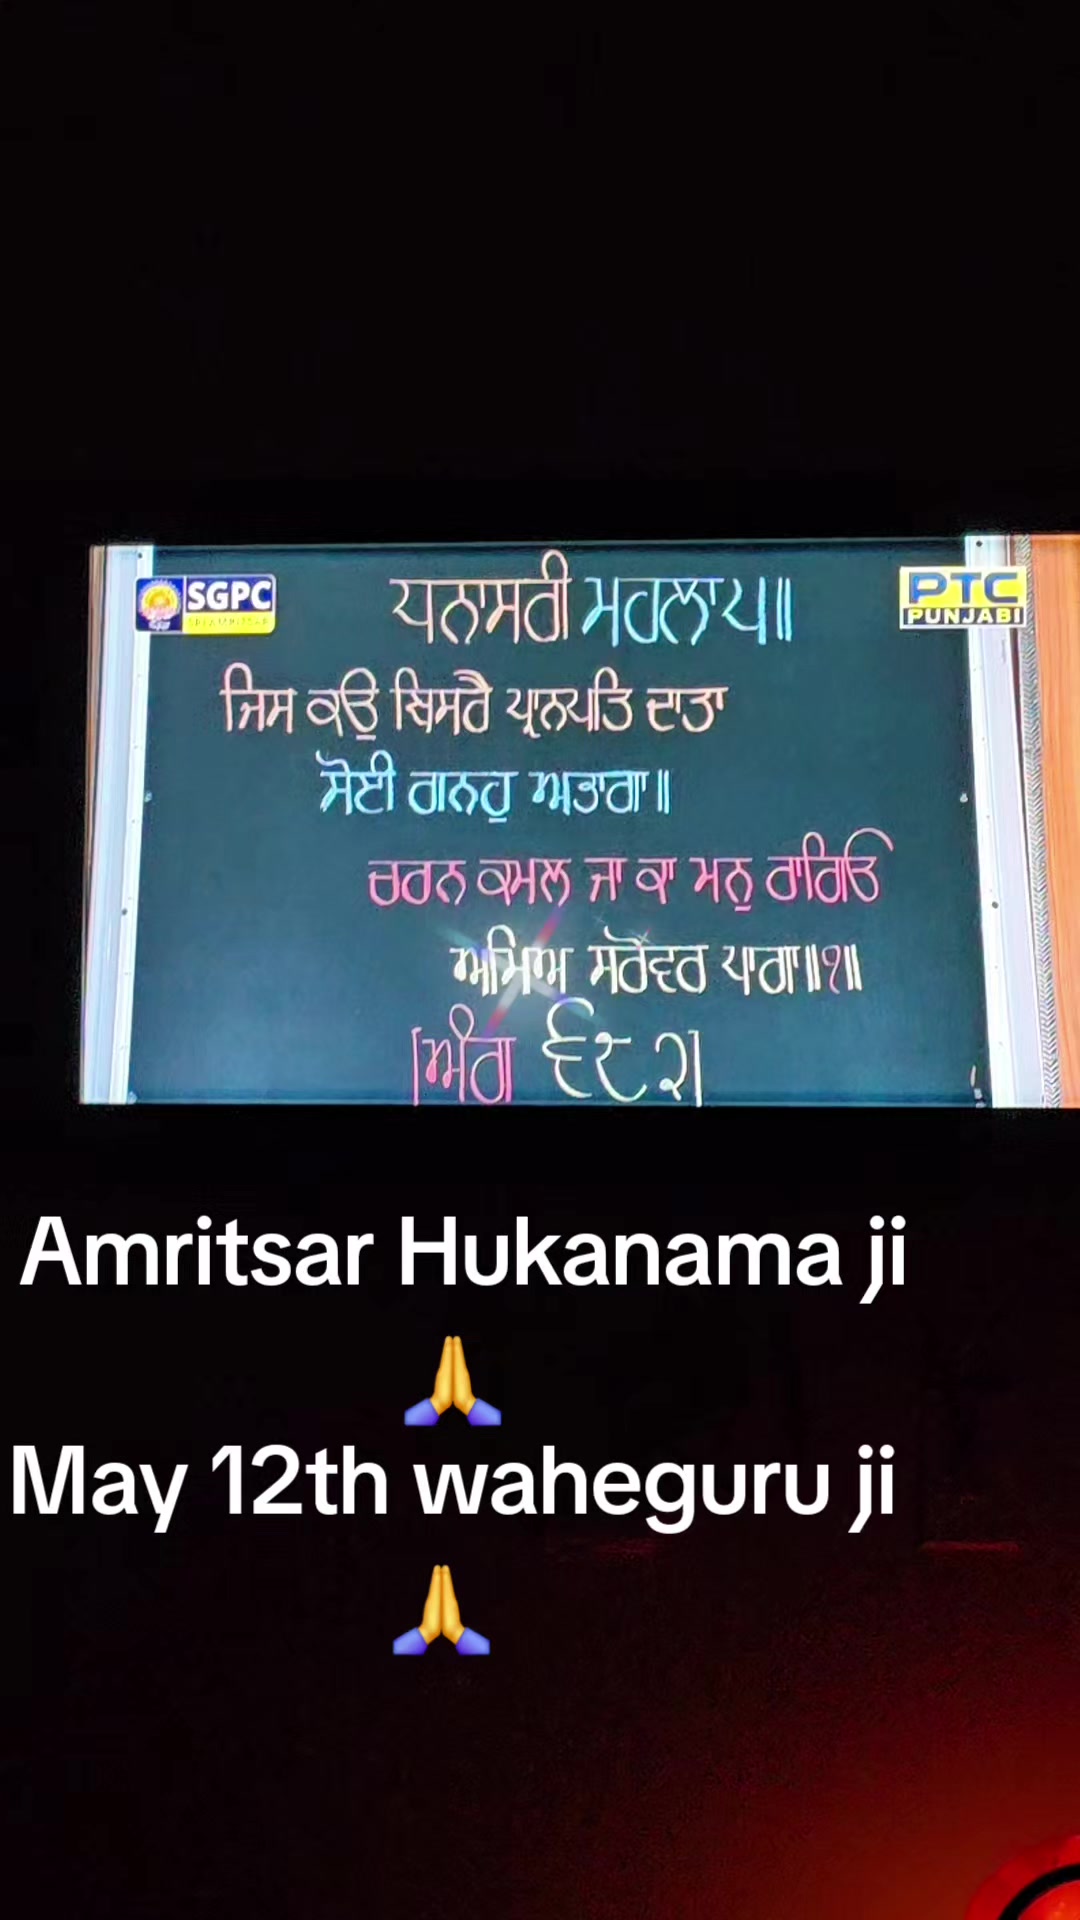 SGPC
PTC
PUNJABI
ਧਨਾਸਰੀ ਮਹਲਾ ੫॥
ਜਿਸ ਕਉ ਬਿਸਰੈ ਪ੍ਰਾਨਪਤਿ ਦਾਤਾ
ਸੋਈ ਗਨਹੁ ਅਭਾਗਾ॥
ਚਰਨ ਕਮਲ ਜਾ ਕਾ ਮਨੁ ਰਾਗਿਓ
ਅਮਿਅ ਸਰੋਵਰ ਪਾਗਾ॥੧॥
[ਅੰਗ ੬੮੨]
Amritsar Hukanama ji
🙏
May 12th waheguru ji
🙏